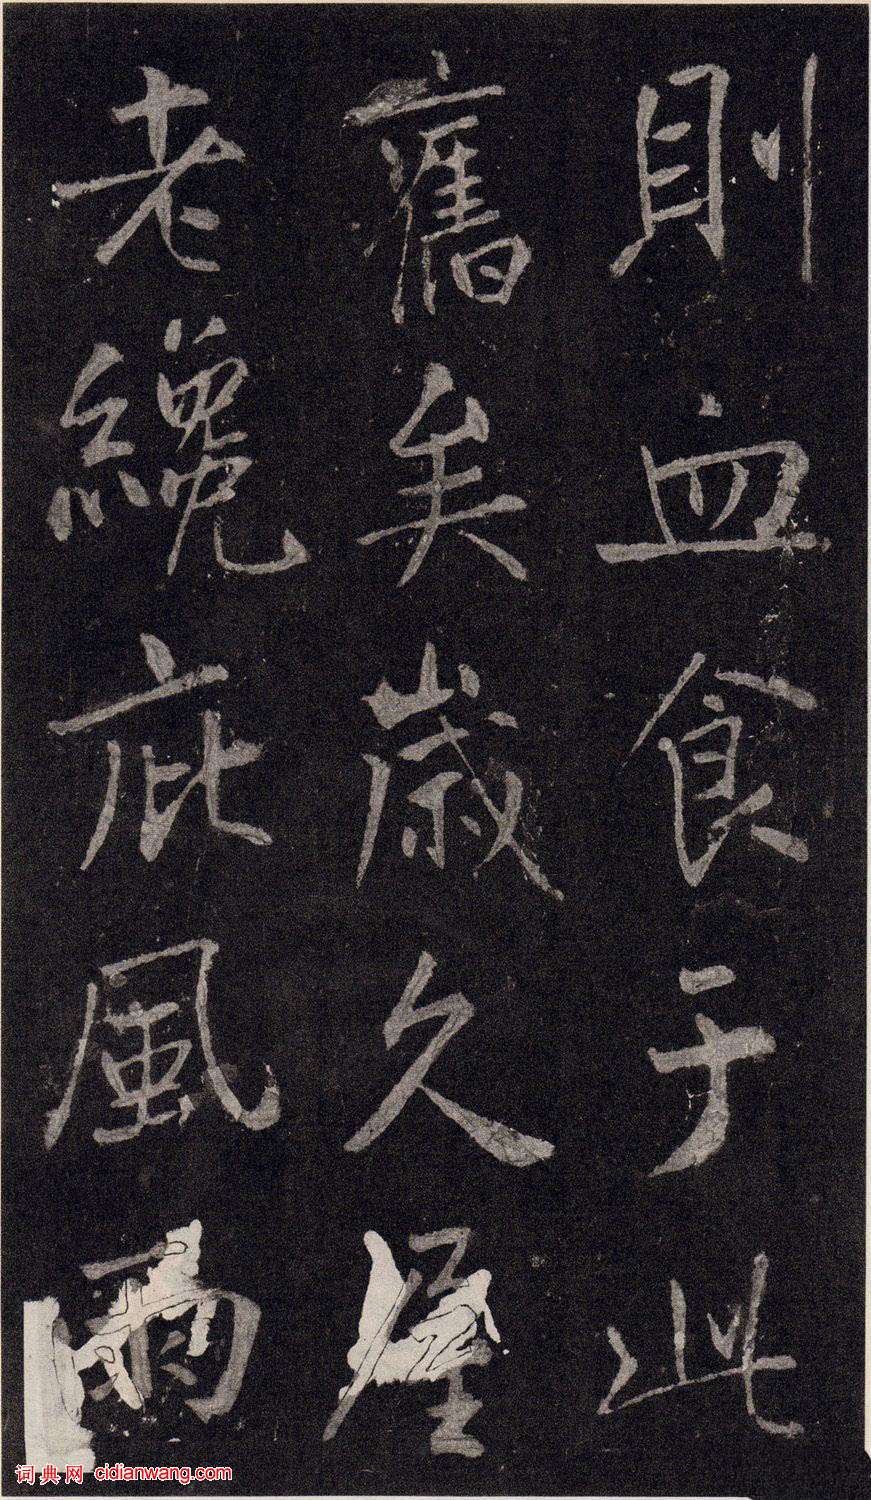 則血食于此
舊矣歲久屋
老纔庇風雨
词典网 cidianwang.com